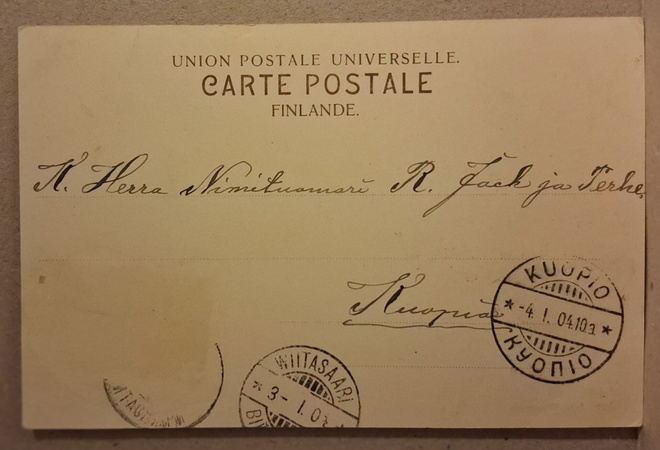 UNION POSTALE UNIVERSELLE.
CARTE POSTALE
FINLANDE.
K. Herra Nimituomari R. Jack ja Perhe.
Kuopio
KUOPIO
* -4. I. 04.10a. *
КУОПІО
WIITASAARI
* 3- I. 04